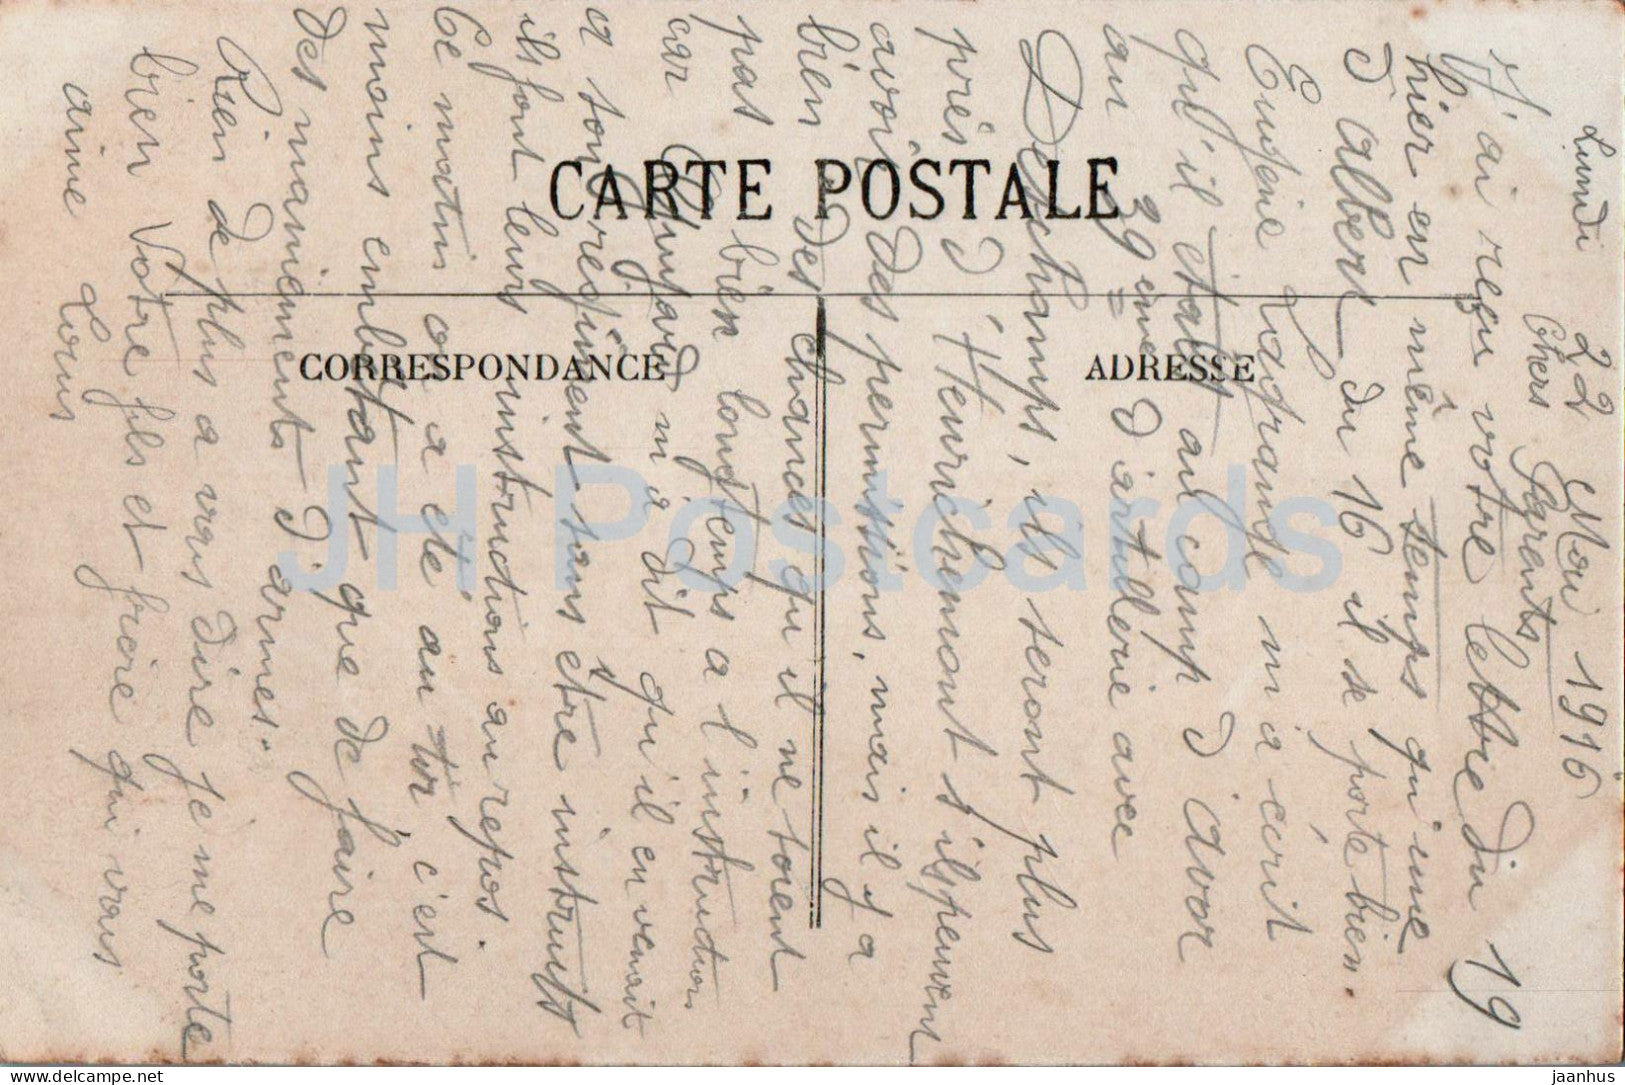 Lundi 22 Mai 1916
Chers Parents
J'ai reçu votre lettre du 19
hier en même temps qu'une
d'Albert du 16 il se porte bien.
Eugène Lagrange m'a écrit
qu'il était au camp d'Avor
au 39 eme d'artillerie avec
Deschamps, ils seront plus
près d'Heurichemont s'ils peuvent
avoir des permissions, mais il y a
bien des chances qu'il ne soient
pas bien longtemps a l'instruction
car m'a dit qu'il en venait
a son régiment sans être instruit
ils font leurs instructions au repos.
Ce matin on a été au tir, c'est
moins embêtant que de faire
des maniements d'armes.
Rien de plus a vous dire je me porte
bien Votre fils et frère qui vous
aime Louis
CARTE POSTALE
CORRESPONDANCE
ADRESSE
JH Postcards
delcampe.net
jaanhus